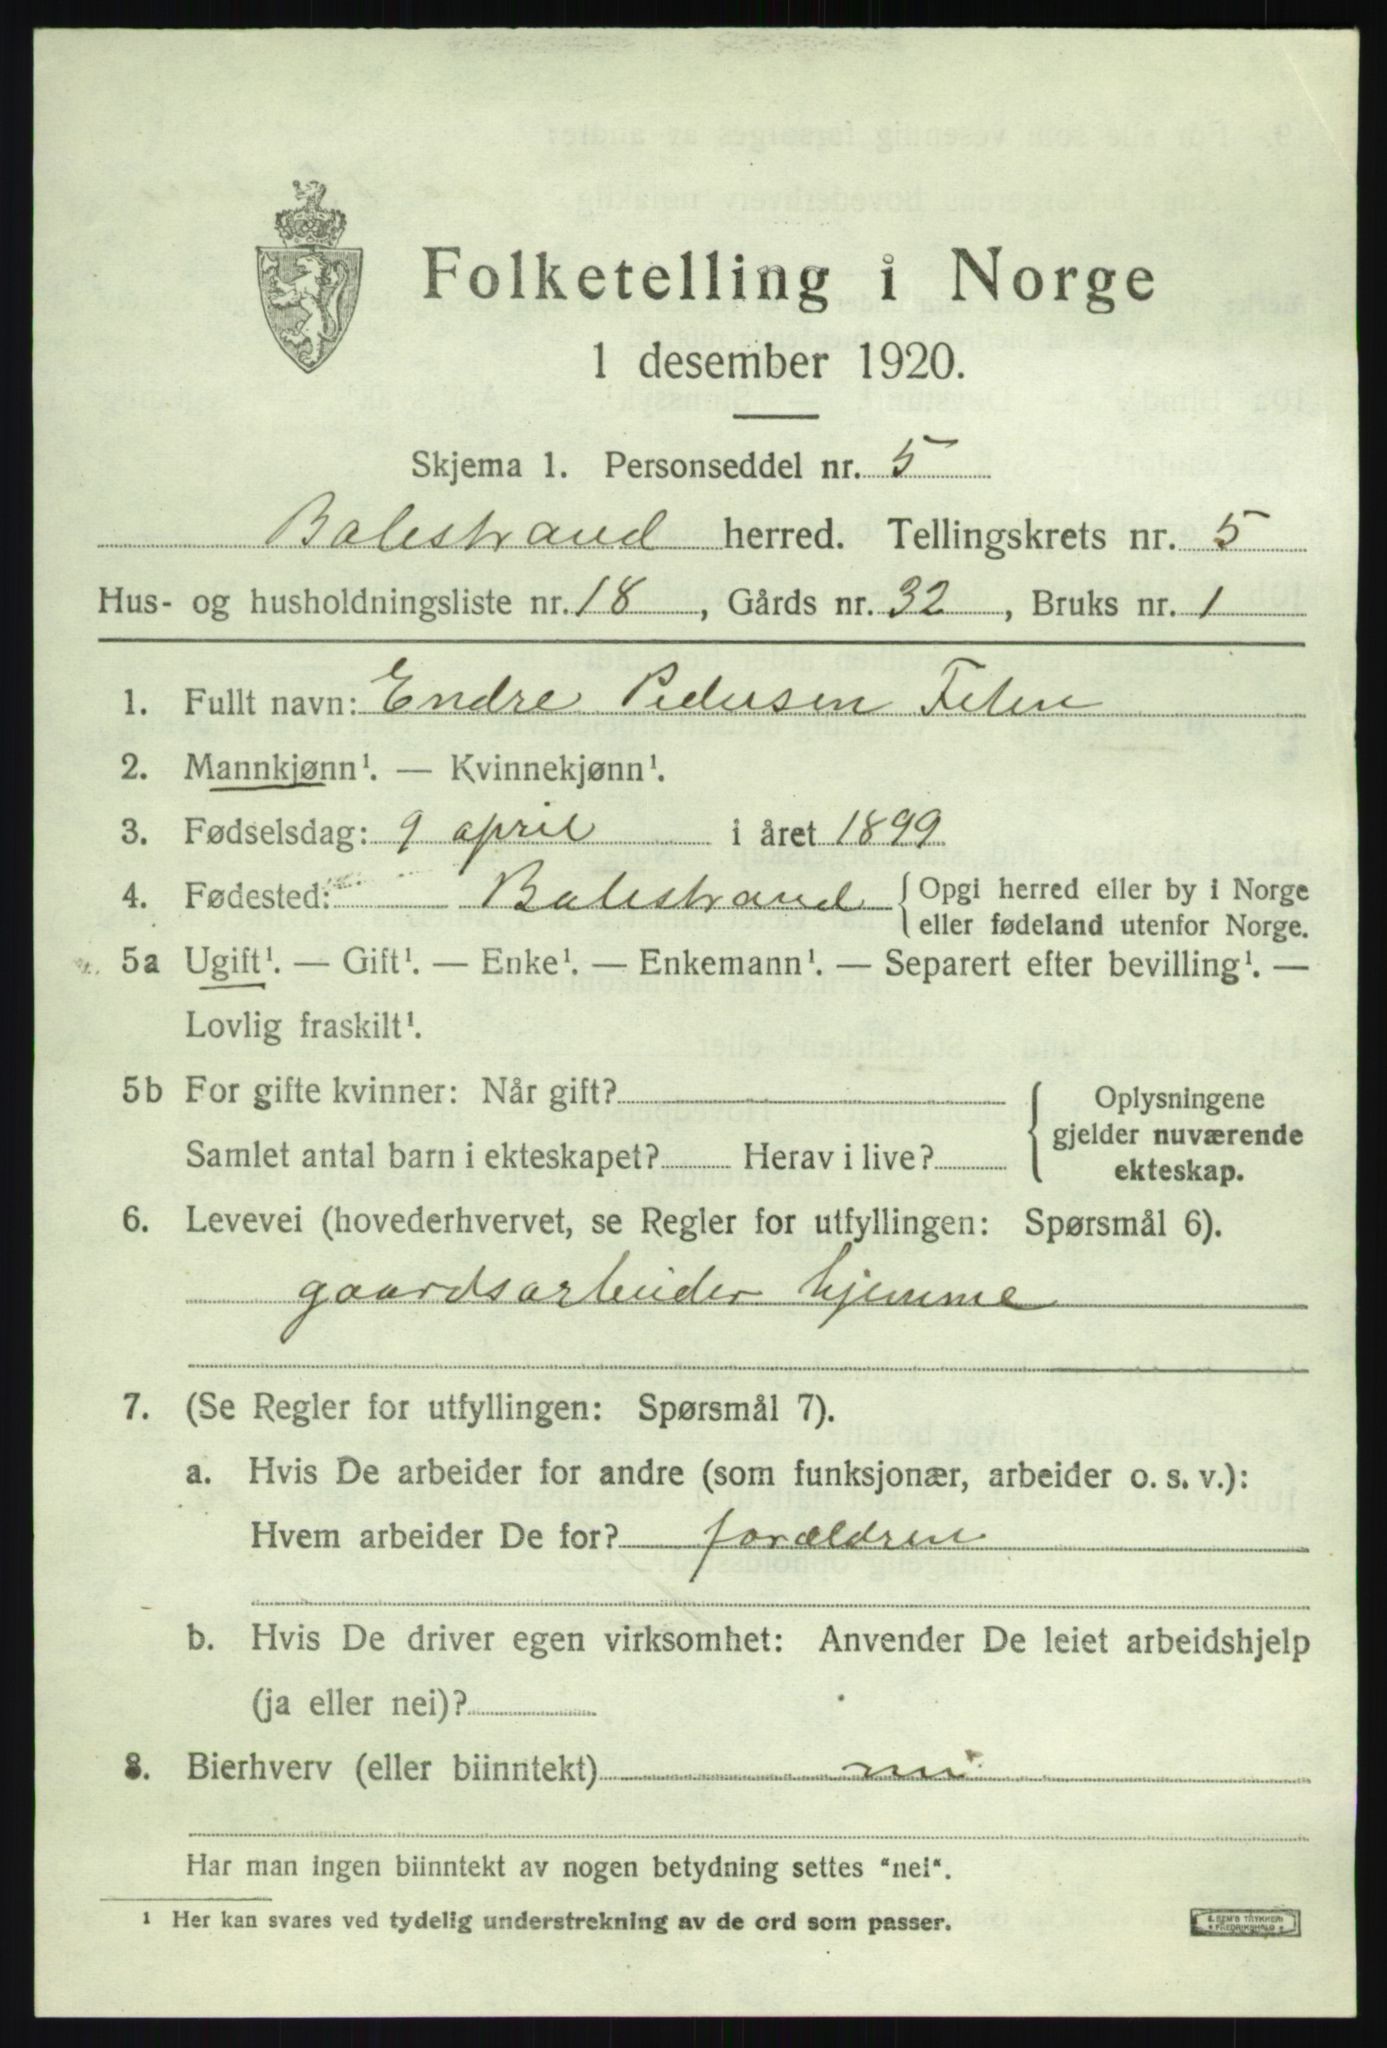 Folketelling i Norge
1 desember 1920.
Skjema 1. Personseddel nr. 5
Balestrand herred. Tellingskrets nr. 5
Hus- og husholdningsliste nr. 18, Gårds nr. 32, Bruks nr. 1
1. Fullt navn: Endre Pedersen Feten
2. Mannkjønn¹. — Kvinnekjønn¹.
3. Fødselsdag: 9 april i året 1899
4. Fødested: Balestrand {Opgi herred eller by i Norge
eller fødeland utenfor Norge.
5a Ugift¹. — Gift¹. — Enke¹. — Enkemann¹. — Separert efter bevilling¹. —
Lovlig fraskilt¹.
5b For gifte kvinner: Når gift?
Samlet antal barn i ekteskapet? Herav i live?
Oplysningene
gjelder nuværende
ekteskap.
6. Levevei (hovederhvervet, se Regler for utfyllingen: Spørsmål 6).
gaardsarbeider hjemme
7. (Se Regler for utfyllingen: Spørsmål 7).
a. Hvis De arbeider for andre (som funksjonær, arbeider o. s. v.):
Hvem arbeider De for? forældren
b. Hvis De driver egen virksomhet: Anvender De leiet arbeidshjelp
(ja eller nei)?
8. Bierhverv (eller biinntekt) nei
Har man ingen biinntekt av nogen betydning settes "nei".
¹ Her kan svares ved tydelig understrekning av de ord som passer.